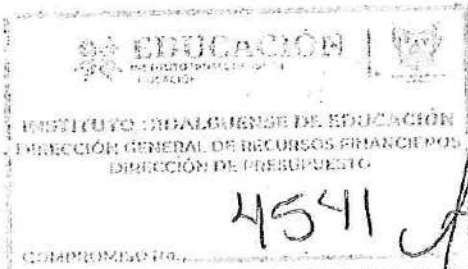 EDUCACIÓN
INSTITUTO HIDALGUENSE DE EDUCACIÓN
DIRECCIÓN GENERAL DE RECURSOS FINANCIEROS
DIRECCIÓN DE PRESUPUESTO
4541
COMPROMISO No.